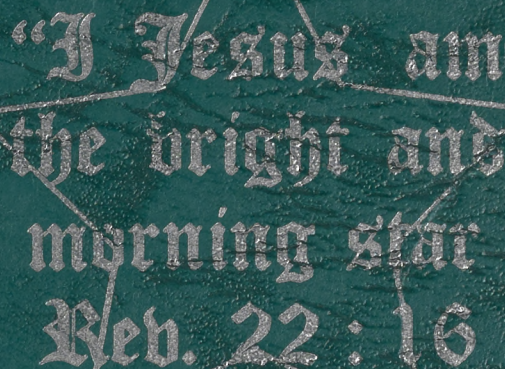 “I Jesus am
the bright and
morning star
Rev. 22:16